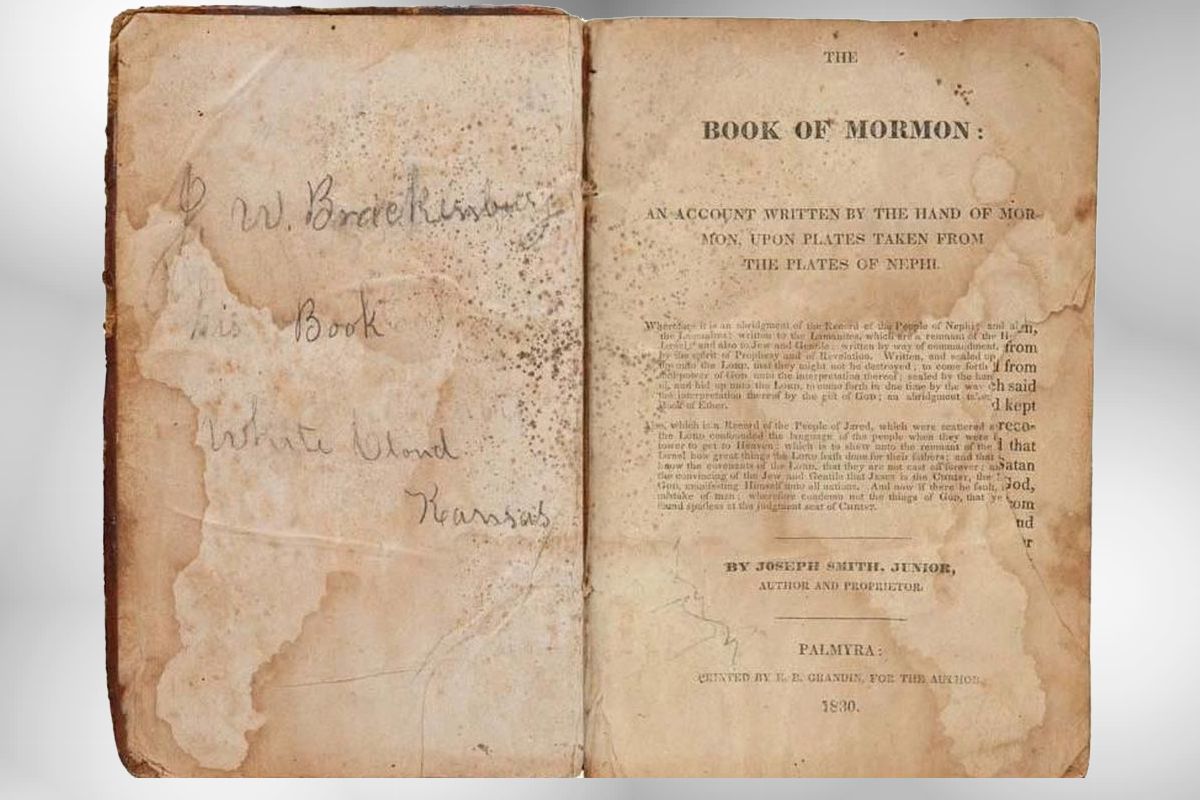 J. W. Brackenbury
his Book
White Cloud
Kansas
THE
BOOK OF MORMON:
AN ACCOUNT WRITTEN BY THE HAND OF MOR-
MON, UPON PLATES TAKEN FROM
THE PLATES OF NEPHI.
Wherefore it is an abridgment of the Record of the People of Nephi; and also
the Lamanites; written to the Lamanites, which are a remnant of the
Israel; and also to Jew and Gentile; written by way of commandment,
by the spirit of Prophecy and of Revelation. Written, and sealed up
up unto the LORD, that they might not be destroyed; to come forth
and power of GOD unto the interpretation thereof; sealed by the
and hid up unto the LORD, to come forth in due time by the way
the interpretation thereof by the gift of GOD; an abridgment
Book of Ether.
Also, which is a Record of the People of Jared, which were scattered
the LORD confounded the language of the people when they were
tower to get to Heaven: which is to shew unto the remnant of the
Israel how great things the LORD hath done for their fathers; and that
know the covenants of the LORD, that they are not cast off forever;
the convincing of the Jew and Gentile that JESUS is the CHRIST, the
GOD, manifesting Himself unto all nations. And now if there be fault,
mistake of men; wherefore condemn not the things of GOD, that ye
found spotless at the judgment seat of CHRIST.
from
from
said
kept
reco-
that
Satan
God,
BY JOSEPH SMITH, JUNIOR,
AUTHOR AND PROPRIETOR.
PALMYRA:
PRINTED BY E. B. GRANDIN, FOR THE AUTHOR.
1830.